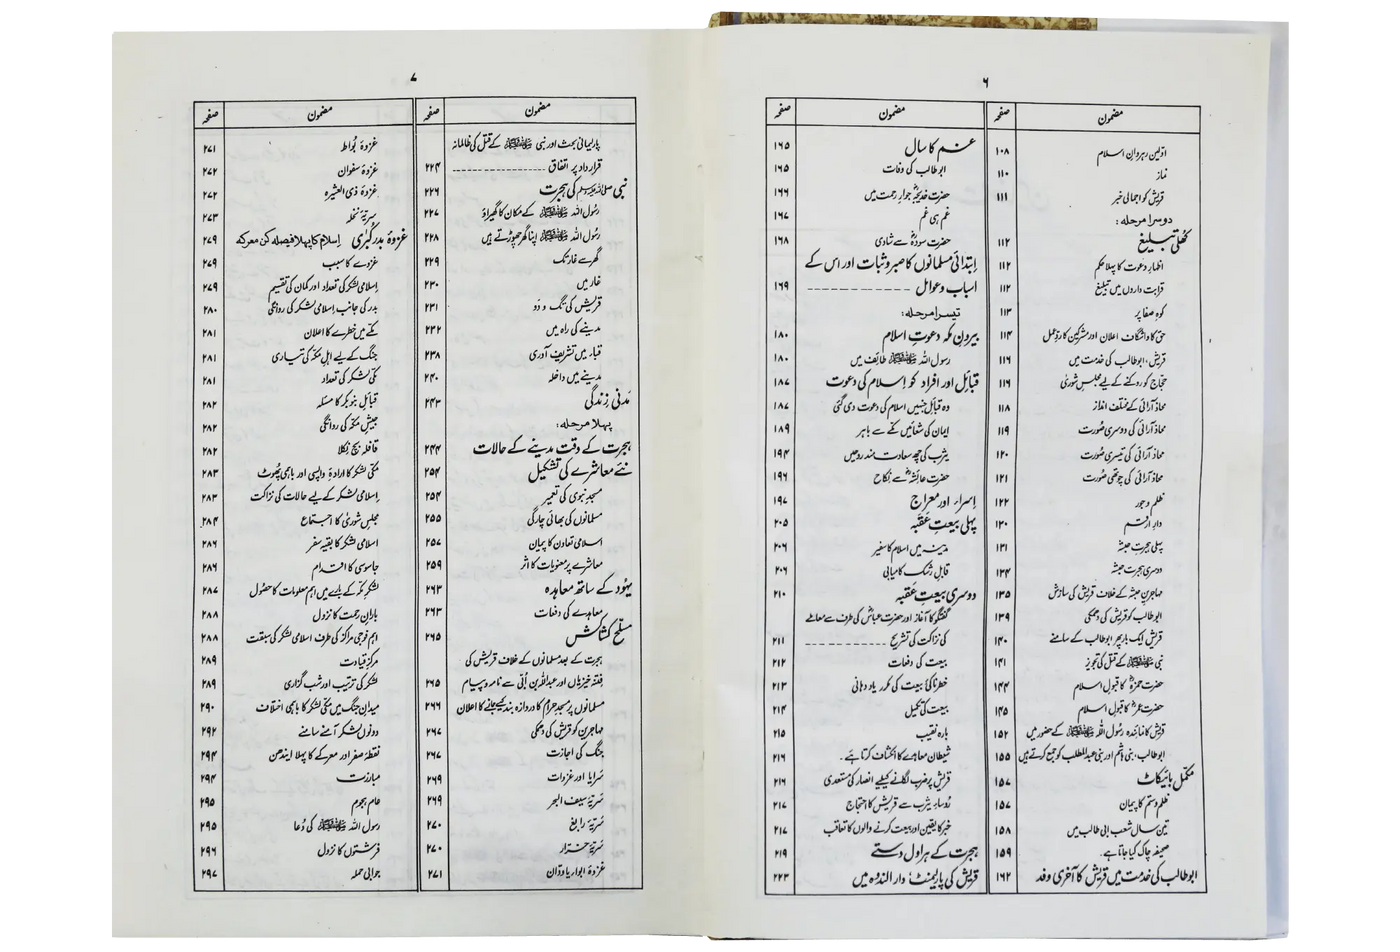 ۶
مضمون صفحہ
اوّلین رہروانِ اسلام ۱۰۸
نماز ۱۱۰
قریش کو اجمالی خبر ۱۱۱
دوسرا مرحلہ:
کھلی تبلیغ ۱۱۲
اظہارِ دعوت کا پہلا حکم ۱۱۲
قرابت داروں میں تبلیغ ۱۱۲
کوہِ صفا پر ۱۱۳
حق کا واشگاف اعلان اور مشرکین کا ردِّعمل ۱۱۴
قریش، ابوطالب کی خدمت میں ۱۱۶
حجاج کو روکنے کے لیے مجلسِ شوریٰ ۱۱۶
محاذ آرائی کے مختلف انداز ۱۱۸
محاذ آرائی کی دوسری صورت ۱۱۹
محاذ آرائی کی تیسری صورت ۱۲۰
محاذ آرائی کی چوتھی صورت ۱۲۱
ظلم و جور ۱۲۲
دارِ ارقم ۱۳۰
پہلی ہجرتِ حبشہ ۱۳۱
دوسری ہجرتِ حبشہ ۱۳۴
مہاجرینِ حبشہ کے خلاف قریش کی سازش ۱۳۵
ابوطالب کو قریش کی دھمکی ۱۳۹
قریش ایک بار پھر ابوطالب کے سامنے ۱۴۰
نبی ﷺ کے قتل کی تجویز ۱۴۱
حضرت حمزہؓ کا قبولِ اسلام ۱۴۴
حضرت عمرؓ کا قبولِ اسلام ۱۴۵
قریش کا نمائندہ رسول اللہ ﷺ کے حضور میں ۱۵۲
ابوطالب، بنی ہاشم اور بنی عبدالمطلب کو جمع کرتے ہیں ۱۵۵
مکمل بائیکاٹ ۱۵۷
ظلم و ستم کا پیمان ۱۵۷
تین سال شعب ابی طالب میں ۱۵۸
صحیفہ چاک کیا جاتا ہے۔ ۱۵۹
ابوطالب کی خدمت میں قریش کا آخری وفد ۱۶۲
مضمون صفحہ
غم کا سال ۱۶۵
ابوطالب کی وفات ۱۶۵
حضرت خدیجہؓ جوارِ رحمت میں ۱۶۶
غم ہی غم ۱۶۷
حضرت سودہؓ سے شادی ۱۶۸
ابتدائی مسلمانوں کا صبر و ثبات اور اس کے
اسباب و عوامل ---------------- ۱۶۹
تیسرا مرحلہ:
بیرونِ مکہ دعوتِ اسلام ۱۸۰
رسول اللہ ﷺ طائف میں ۱۸۰
قبائل اور افراد کو اسلام کی دعوت ۱۸۷
وہ قبائل جنہیں اسلام کی دعوت دی گئی ۱۸۷
ایمان کی شعاعیں مکّے سے باہر ۱۸۹
یثرب کی چھ سعادت مند روحیں ۱۹۴
حضرت عائشہؓ سے نکاح ۱۹۶
اسراء اور معراج ۱۹۷
پہلی بیعتِ عَقَبہ ۲۰۵
مدینہ میں اسلام کا سفیر ۲۰۶
قابلِ رشک کامیابی ۲۰۶
دوسری بیعتِ عَقَبہ ۲۱۰
گفتگو کا آغاز اور حضرت عباسؓ کی طرف سے معاملے
کی نزاکت کی تشریح ------------- ۲۱۱
بیعت کی دفعات ۲۱۲
خطرناکئ بیعت کی مکرر یاد دہانی ۲۱۳
بیعت کی تکمیل ۲۱۴
بارہ نقیب ۲۱۵
شیطان معاہدے کا انکشاف کرتا ہے۔ ۲۱۶
قریش پر ضرب لگانے کیلیے انصار کی مستعدی ۲۱۶
رُوساءِ یثرب سے قریش کا احتجاج ۲۱۷
خبر کا یقین اور بیعت کرنے والوں کا تعاقب ۲۱۷
ہجرت کے ہراول دستے ۲۱۹
قریش کی پارلیمنٹ دار الندوہ میں ۲۲۳
۷
مضمون صفحہ
پارلیمانی بحث اور نبی ﷺ کے قتل کی ظالمانہ
قرارداد پر اتفاق --------------- ۲۲۴
نبی ﷺ کی ہجرت ۲۲۶
رسول اللہ ﷺ کے مکان کا گھیراؤ ۲۲۷
رسول اللہ ﷺ اپنا گھر چھوڑتے ہیں ۲۲۸
گھر سے غار تک ۲۲۹
غار میں ۲۳۰
قریش کی تگ و دَو ۲۳۱
مدینے کی راہ میں ۲۳۲
قباء میں تشریف آوری ۲۳۸
مدینے میں داخلہ ۲۴۰
مَدنی زندگی ۲۴۳
پہلا مرحلہ:
ہجرت کے وقت مدینے کے حالات ۲۴۴
نئے معاشرے کی تشکیل ۲۵۴
مسجدِ نبوی کی تعمیر ۲۵۴
مسلمانوں کی بھائی چارگی ۲۵۵
اسلامی تعاون کا پیمان ۲۵۷
معاشرے پر معنویات کا اثر ۲۵۹
یہُود کے ساتھ معاہدہ ۲۶۳
معاہدے کی دفعات ۲۶۳
مسلّح کشاکش ۲۶۵
ہجرت کے بعد مسلمانوں کے خلاف قریش کی
فتنہ خیزیاں اور عبداللہ بن اُبی سے نامہ و پیام ۲۶۵
مسلمانوں پر مسجدِ حرام کا دروازہ بند کیے جانے کا اعلان ۲۶۶
مہاجرین کو قریش کی دھمکی ۲۶۷
جنگ کی اجازت ۲۶۷
سَرایا اور غزوات ۲۶۹
سَریّہ سیف البحر ۲۶۹
سَریّہ رابغ ۲۷۰
سَریّہ خرار ۲۷۰
غزوۂ ابواء یا ودّان ۲۷۱
مضمون صفحہ
غزوۂ بُواط ۲۷۱
غزوۂ سفوان ۲۷۲
غزوۂ ذی العشیرہ ۲۷۲
سَریّۂ نخلہ ۲۷۳
غزوۂ بدر کُبریٰ اسلام کا پہلا فیصلہ کن معرکہ ۲۷۹
غزوے کا سبب ۲۷۹
اسلامی لشکر کی تعداد اور کمان کی تقسیم ۲۷۹
بدر کی جانب اسلامی لشکر کی روانگی ۲۸۰
مکّے میں خطرے کا اعلان ۲۸۱
جنگ کے لیے اہلِ مکّہ کی تیاری ۲۸۱
مکّی لشکر کی تعداد ۲۸۱
قبائل بنو بکر کا مسئلہ ۲۸۲
جیشِ مکّہ کی روانگی ۲۸۲
قافلہ بچ نکلا ۲۸۲
مکّی لشکر کا ارادۂ واپسی اور باہمی پھُوٹ ۲۸۳
اسلامی لشکر کے لیے حالات کی نزاکت ۲۸۳
مجلسِ شوریٰ کا اجتماع ۲۸۴
اسلامی لشکر کا بقیہ سفر ۲۸۶
جاسوسی کا اقدام ۲۸۶
لشکرِ مکّہ کے بارے میں اہم معلومات کا حصُول ۲۸۷
بارانِ رحمت کا نزول ۲۸۸
اہم فوجی مراکز کی طرف اسلامی لشکر کی سبقت ۲۸۸
مرکزِ قیادت ۲۸۹
لشکر کی ترتیب اور شب گزاری ۲۸۹
میدانِ جنگ میں مکّی لشکر کا باہمی اختلاف ۲۹۰
دونوں لشکر آمنے سامنے ۲۹۲
نقطۂ صفر اور معرکے کا پہلا ایندھن ۲۹۴
مبارزت ۲۹۴
عام ہجوم ۲۹۵
رسول اللہ ﷺ کی دُعا ۲۹۵
فرشتوں کا نزول ۲۹۶
جوابی حملہ ۲۹۷